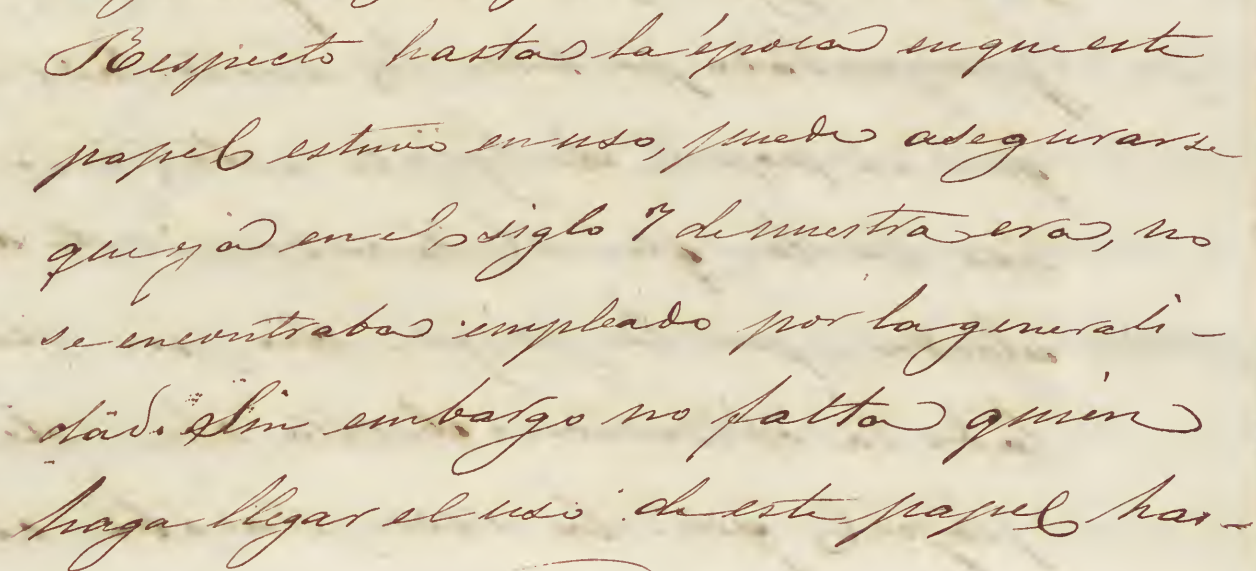 Respecto hasta la época en que este
papel estuvo en uso, puede asegurarse
que ya en el siglo 7 de nuestra era, no
se encontraba empleado por la generali-
dad. Sin embargo no falta quien
haga llegar el uso de este papel has-